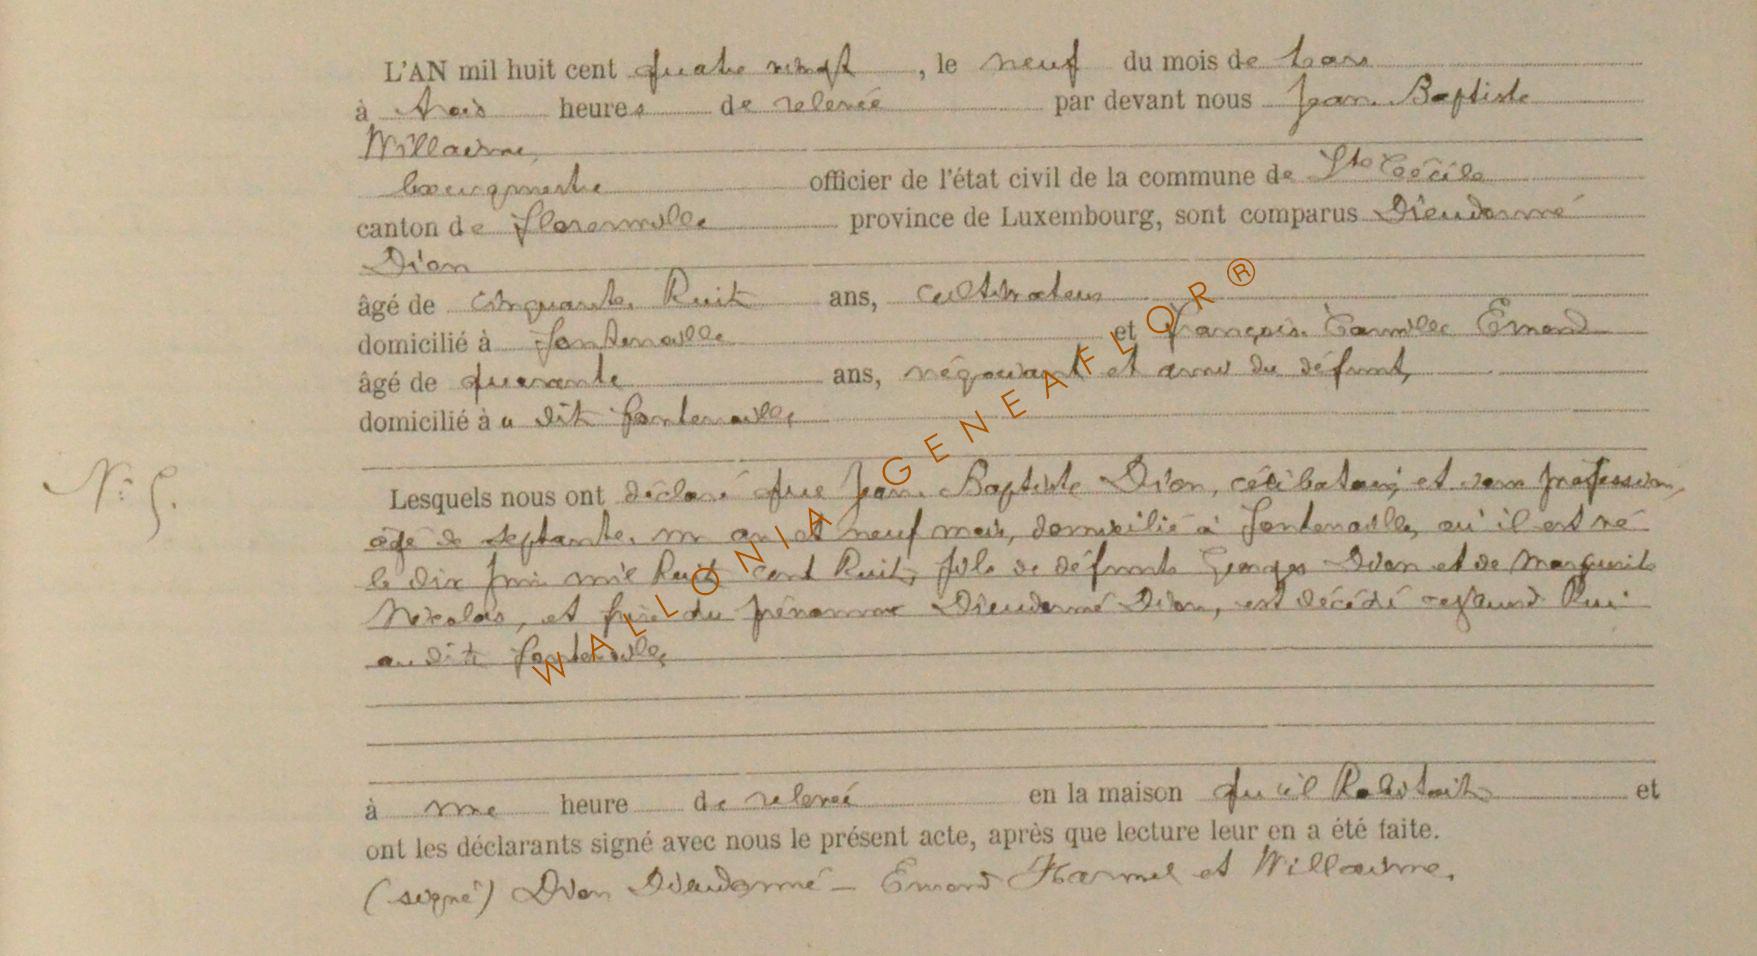 L'AN mil huit cent quatre vingt, le neuf du mois de Mars
à trois heures de relevée par devant nous Jean Baptiste
Willaime,
bourgmestre officier de l'état civil de la commune de Ste Cécile
canton de Florenville province de Luxembourg, sont comparus Dieudonné
Dion
âgé de cinquante huit ans, cultivateur
domicilié à Fontenoille et François Camille Emond
âgé de quarante ans, négociant et ami du défunt,
domicilié à u dit Fontenoille,
N° 5.
Lesquels nous ont déclaré que Jean Baptiste Dion, célibataire, et sans profession,
âgé de septante un an et neuf mois, domicilié à Fontenoille, où il est né
le dix juin mil huit cent huit, fils de défunts Georges Dion et de Marguerite
Nicolas, et frère du prénommé Dieudonné Dion, est décédé cejourd'hui
au dit Fontenoille,
à une heure de relevée en la maison qu'il habitait et
ont les déclarants signé avec nous le présent acte, après que lecture leur en a été faite.
(signé) Dion Dieudonné - Emond et Willaime.
WALLONIA GENEAFLOR®